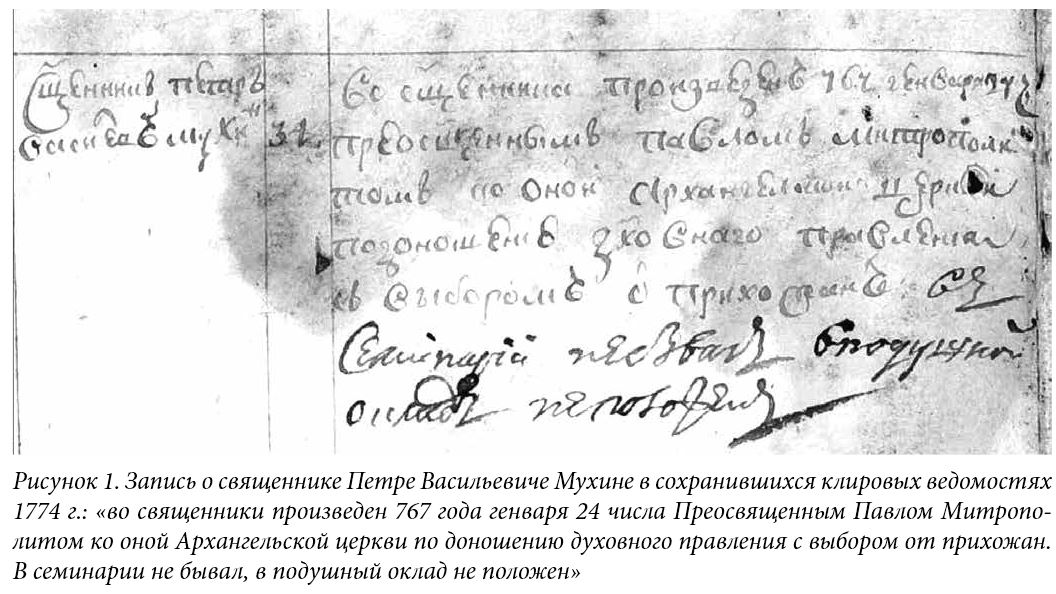 Сщенникъ петаръ
василевъ мухинъ 32
во сщенника произведенъ 767 генваря 24
преосщеннымъ павломъ митрополи
томъ ко оной архангелской церкви
по доношению дховнаго правления
съ выборомъ о прихожанъ въ
семинарій не бвалъ в подушной
окладъ не положенъ
Рисунок 1. Запись о священнике Петре Васильевиче Мухине в сохранившихся клировых ведомостях
1774 г.: «во священники произведен 767 года генваря 24 числа Преосвященным Павлом Митропо-
литом ко оной Архангельской церкви по доношению духовного правления с выбором от прихожан.
В семинарии не бывал, в подушный оклад не положен»